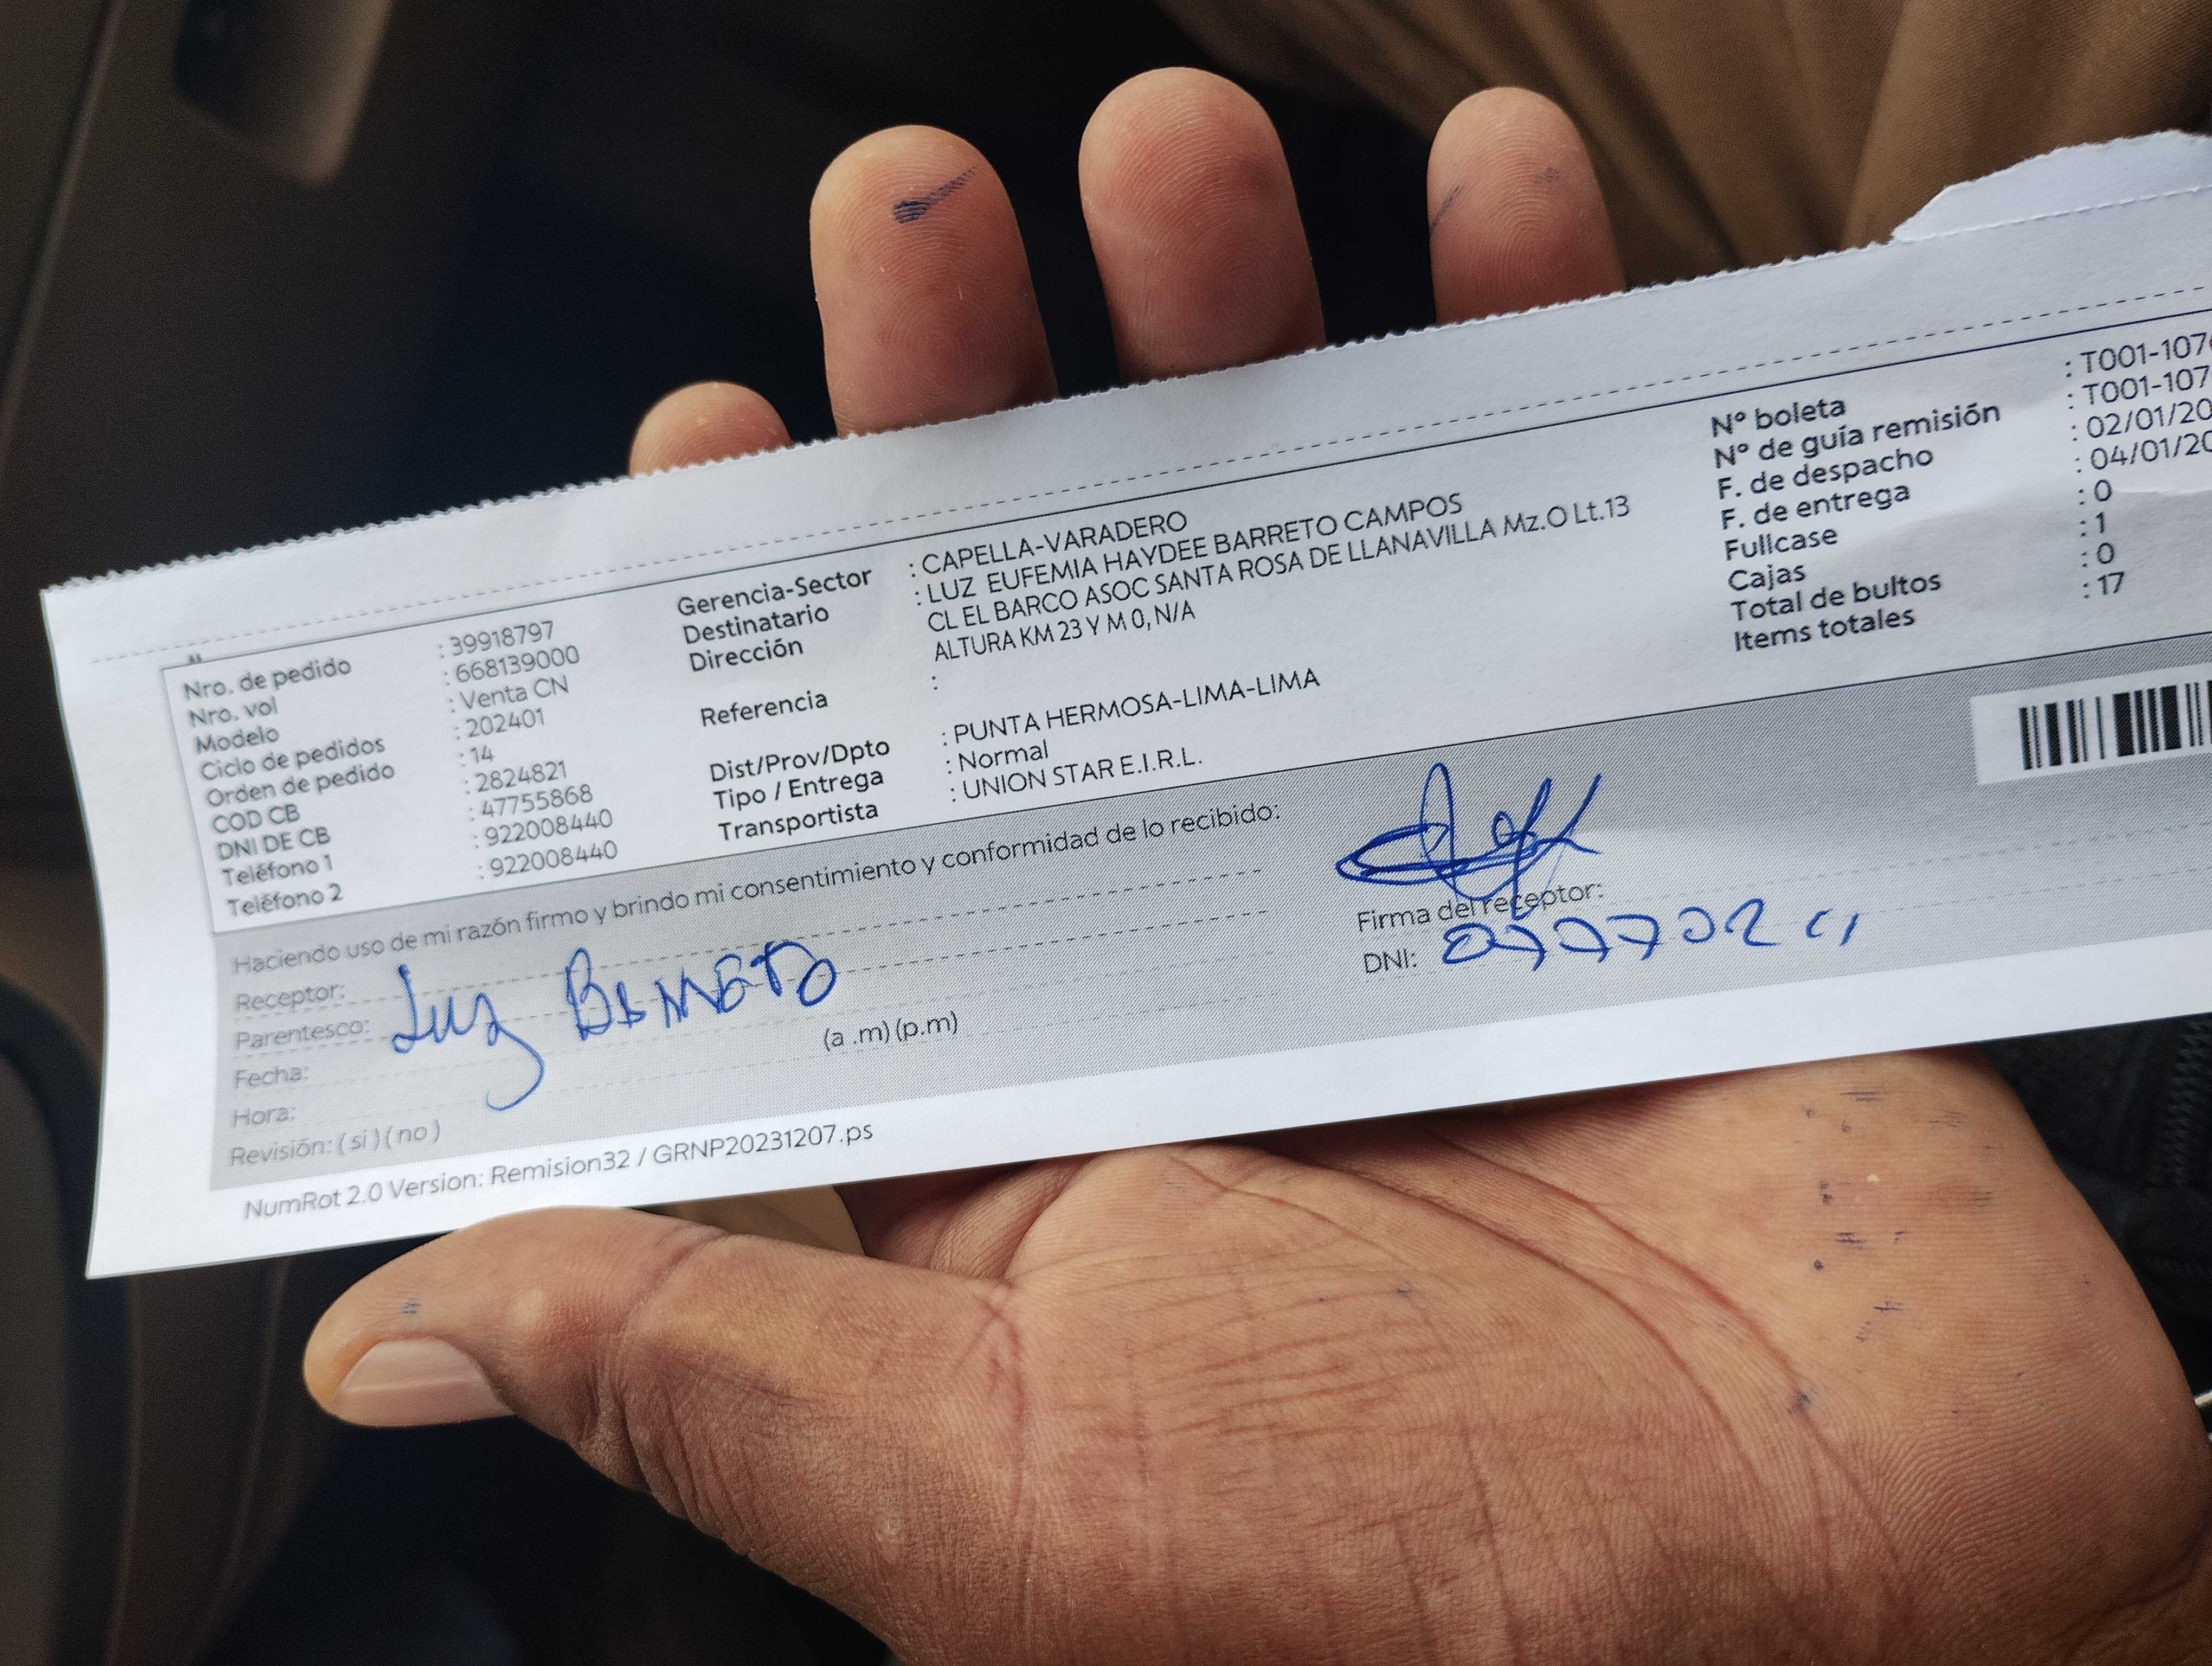 Nro. de pedido : 39918797
Nro. vol : 668139000
Modelo : Venta CN
Ciclo de pedidos : 202401
Orden de pedido : 14
COD CB : 2824821
DNI DE CB : 47755868
Teléfono 1 : 922008440
Teléfono 2 : 922008440
Gerencia-Sector : CAPELLA-VARADERO
Destinatario : LUZ EUFEMIA HAYDEE BARRETO CAMPOS
Dirección CL EL BARCO ASOC SANTA ROSA DE LLANAVILLA Mz.O Lt.13
ALTURA KM 23 Y M 0, N/A
Referencia :
Dist/Prov/Dpto : PUNTA HERMOSA-LIMA-LIMA
Tipo / Entrega : Normal
Transportista : UNION STAR E.I.R.L.
Nº boleta : T001-107
Nº de guía remisión : T001-107
F. de despacho : 02/01/20
F. de entrega : 04/01/20
Fullcase : 0
Cajas : 1
Total de bultos : 0
Items totales : 17
Haciendo uso de mi razón firmo y brindo mi consentimiento y conformidad de lo recibido:
Receptor:
Parentesco: Luz Barreto
Fecha:
Hora: (a .m) (p.m)
Revisión: ( si ) ( no )
Firma del receptor:
DNI:
NumRot 2.0 Version: Remision32 / GRNP20231207.ps